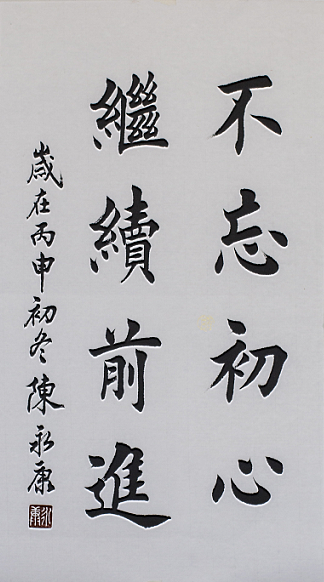 不忘初心
繼續前進
歲在丙申初冬陳永康
永康